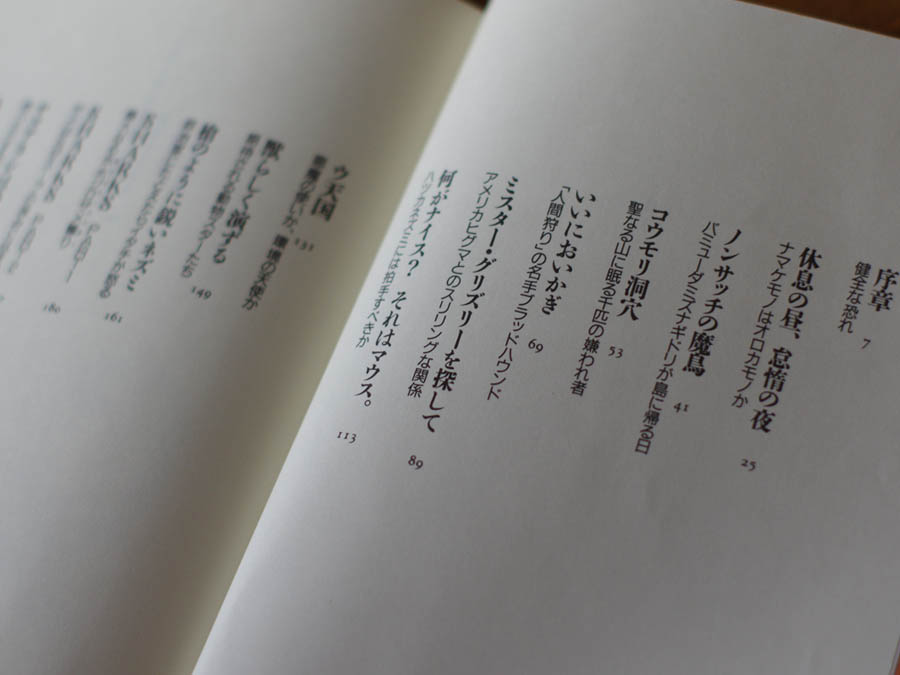 序章
健全な恐れ
7
休息の昼、怠惰の夜
ナマケモノはオロカモノか
25
ノンサッチの魔鳥
バミューダミズナギドリが島に帰る日
41
コウモリ洞穴
聖なる山に眠る千匹の嫌われ者
53
いいにおいかぎ
「人間狩り」の名手ブラッドハウンド
69
ミスター・グリズリーを探して
アメリカヒグマとのスリリングな関係
89
何がナイス? それはマウス。
ハツカネズミには拍手すべきか
113
ウ天国
悪魔の使いか、環境の天使か
131
獣らしく演ずる
動物スターたち
149
槍のように鋭いネズミ
161
SHARKS
180